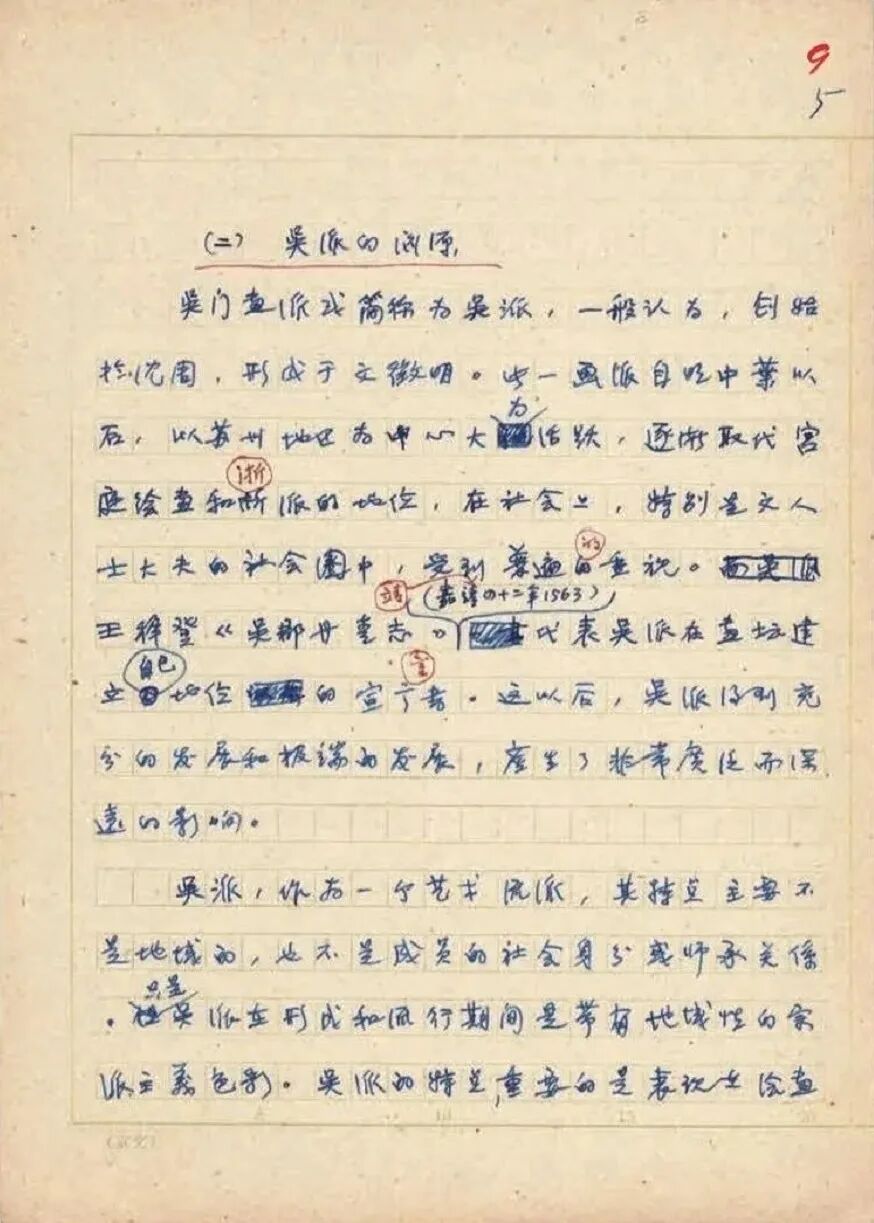 9
5
(二) 吴派的渊源
吴门画派或简称为吴派，一般认为，创始
於沈周，形成于文徵明。此一画派自明中葉以
为
后，以苏州地区为中心大活跃，逐渐取代宫
浙
庭绘画和浙派的地位，在社会上，特别是文人
的
士大夫的社会圈中，受到普遍的重视。而吴派
靖 (嘉靖四十二年1563)
王穉登《吴郡丹青志》代表吴派在画坛建
自己 言
立地位的宣言者。这以后，吴派得到充
分的发展和极端的发展，产生了非常广泛而深
远的影响。
吴派，作为一个艺术流派，其特点主要不
是地域的，也不是成员的社会身分或师承关係
只是
。吴派在形成和流行期间是带有地域性的宗
派主義色彩。吴派的特点，重要的是表现在绘画
15